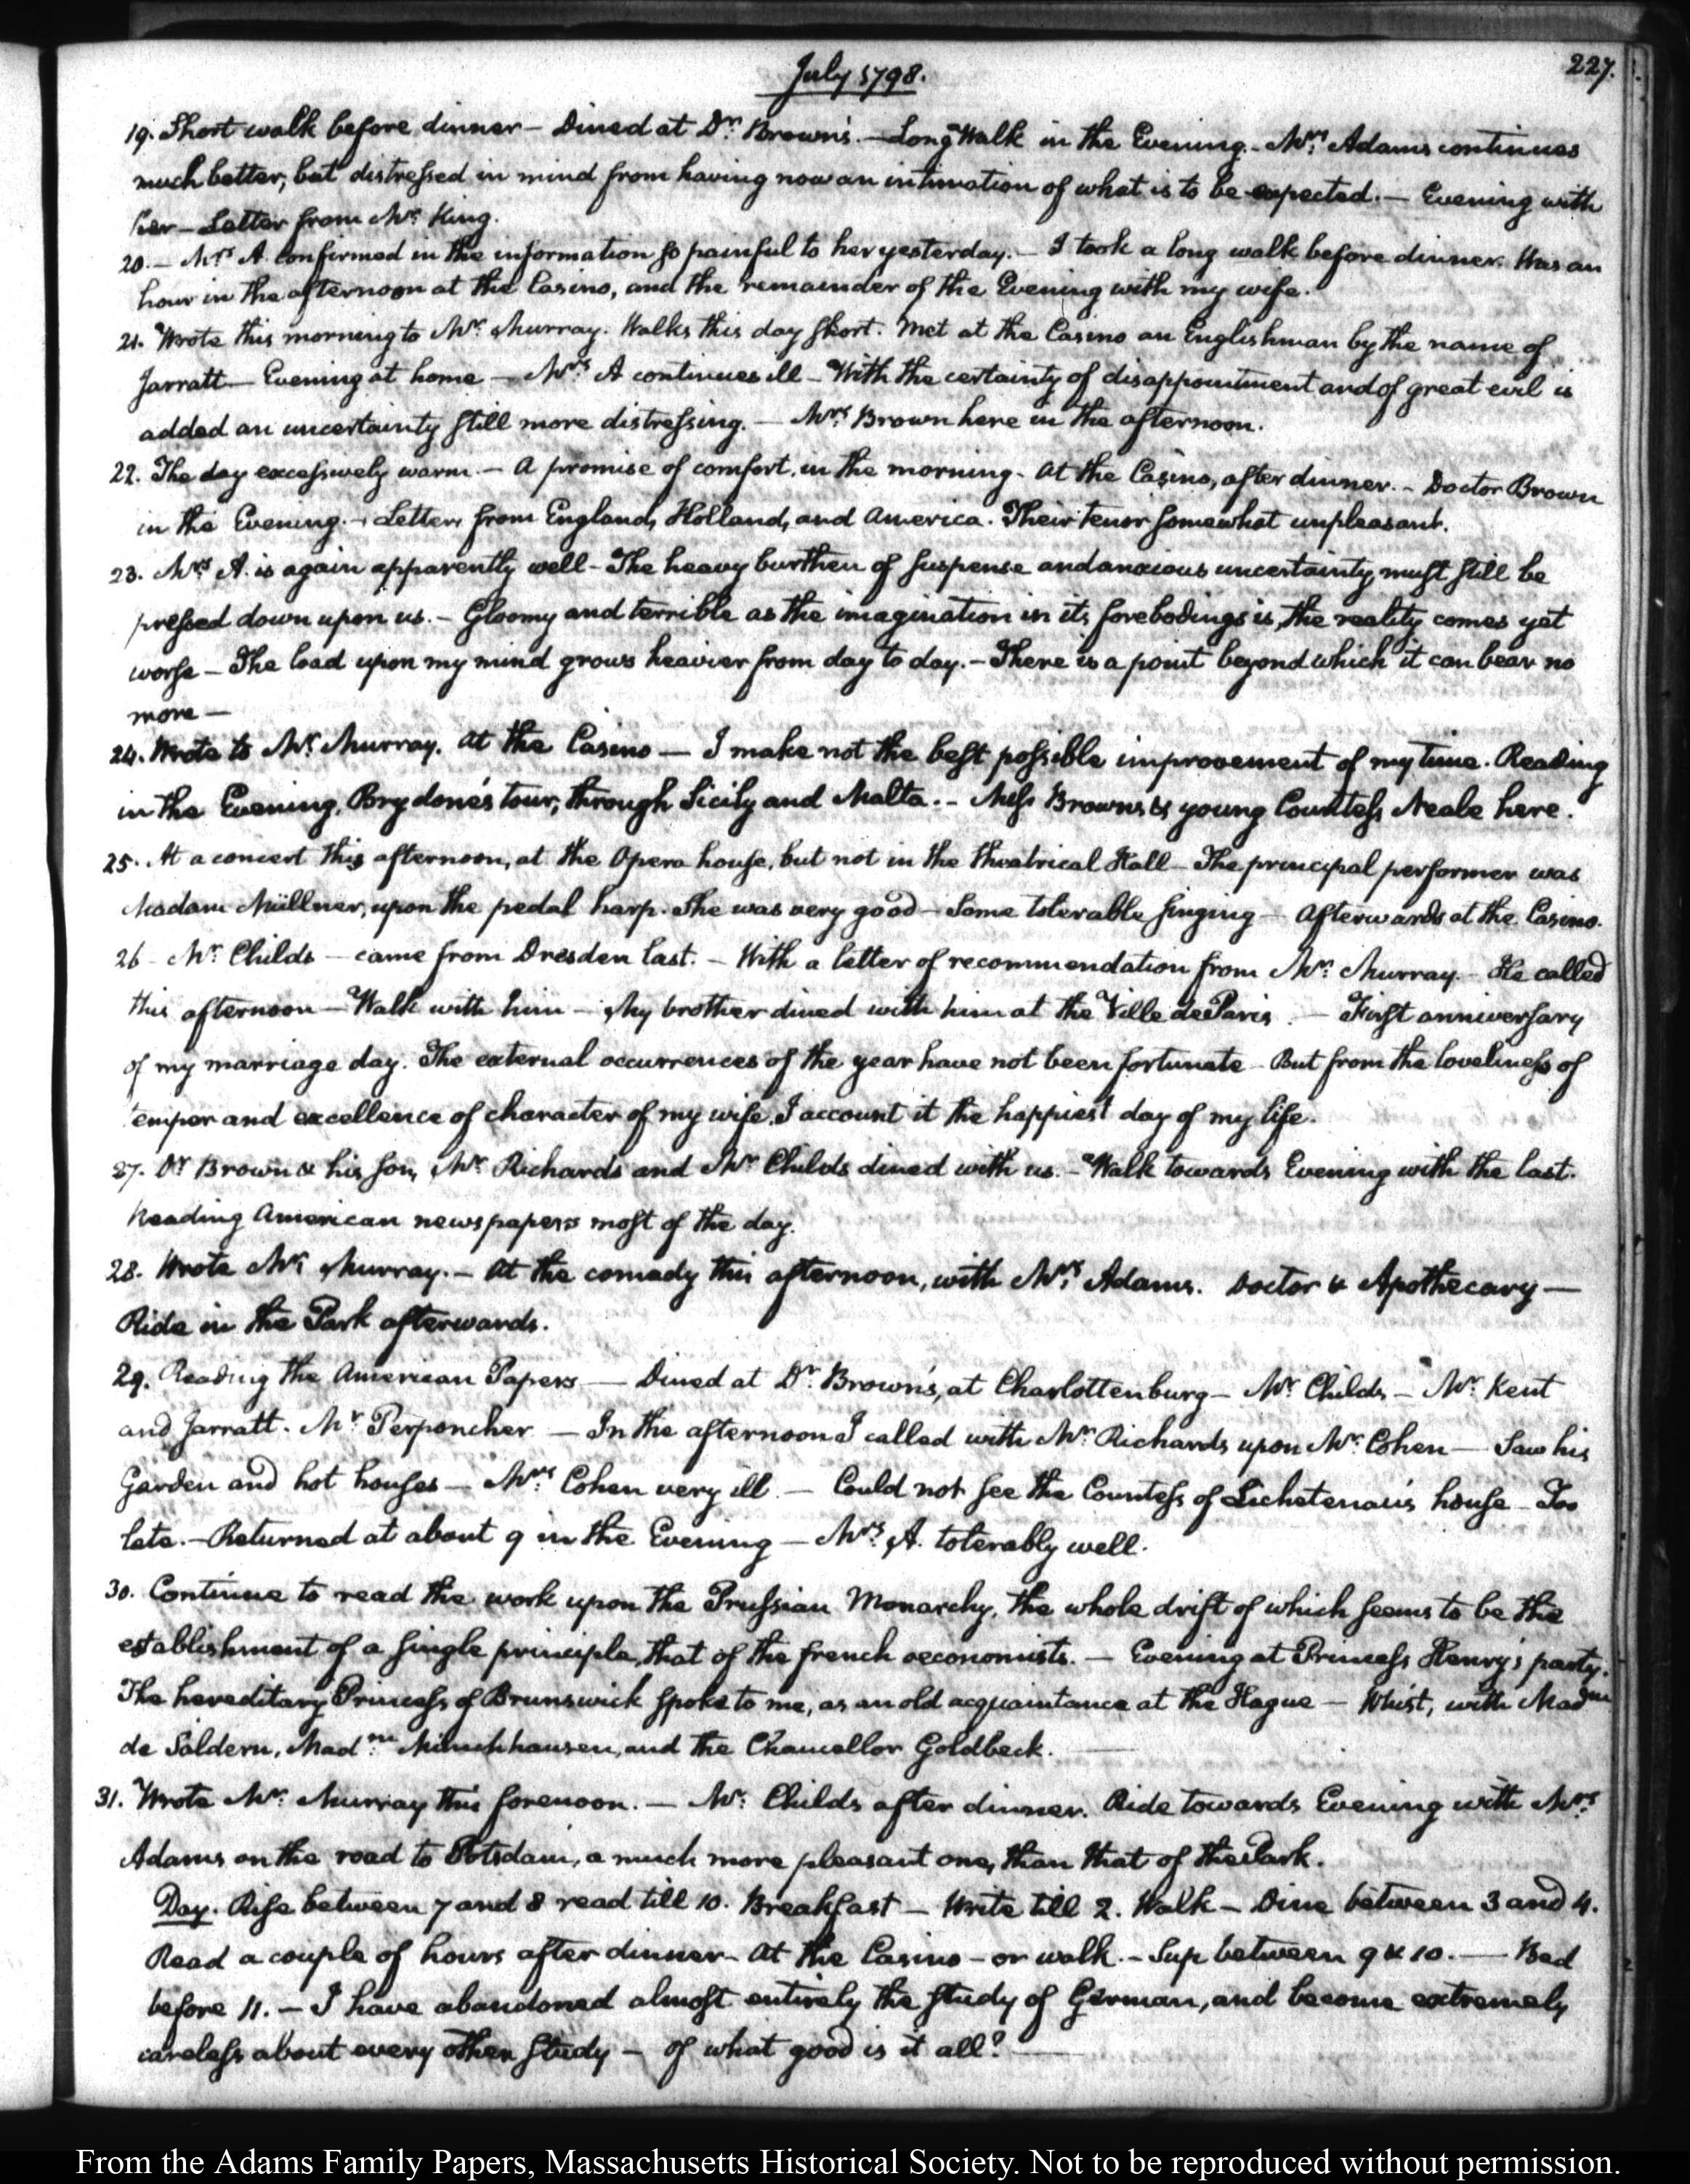 July 1798.
227.
19. Short walk before dinner – Dined at Dr. Brown's. – Long Walk in the Evening. – Mrs. Adams continues
much better, but distressed in mind from having now an intimation of what is to be expected. – Evening with
her – Letter from Mr. King.
20. – Mrs. A. confirmed in the information so painful to her yesterday. – I took a long walk before dinner. Was an
hour in the afternoon at the Casino, and the remainder of the Evening with my wife.
21. Wrote this morning to Mr. Murray. Walks this day short. Met at the Casino an Englishman by the name of
Jarratt – Evening at home – Mrs. A continues ill – With the certainty of disappointment and of great evil is
added an uncertainty still more distressing. – Mrs. Brown here in the afternoon.
22. The day excessively warm. – A promise of comfort, in the morning – At the Casino, after dinner. – Doctor Brown
in the Evening. – Letters from England, Holland, and America. Their tenor somewhat unpleasant.
23. Mrs. A. is again apparently well – The heavy burthen of suspense and anxious uncertainty must still be
pressed down upon us. – Gloomy and terrible as the imagination in its forebodings is, the reality comes yet
worse – The load upon my mind grows heavier from day to day. – There is a point beyond which it can bear no
more –
24. Wrote to Mr. Murray. At the Casino – I make not the best possible improvement of my time. Reading
in the Evening, Brydone's tour, through Sicily and Malta. – Miss Browns & young Countess Neale here.
25. At a concert this afternoon, at the Opera house, but not in the theatrical Hall – The principal performer was
Madam Müllner, upon the pedal harp. She was very good – Some tolerable singing – Afterwards at the Casino.
26 – Mr. Childs – came from Dresden last. – With a letter of recommendation from Mr. Murray. – He called
this afternoon – Walk with him – My brother dined with him at the Ville de Paris. – First anniversary
of my marriage day. The external occurrences of the year have not been fortunate – But from the loveliness of
temper and excellence of character of my wife, I account it the happiest day of my life.
27. Dr Brown & his son, Mr. Richards and Mr Childs dined with us. – Walk towards Evening with the last.
Reading American newspapers most of the day.
28. Wrote Mr. Murray. – At the comedy this afternoon, with Mrs. Adams. Doctor & Apothecary –
Ride in the Park afterwards.
29. Reading the American Papers – Dined at Dr. Brown's, at Charlottenburg – Mr. Childs, – Mr. Kent
and Jarratt. Mr. Perponcher – In the afternoon I called with Mr. Richards upon Mr. Cohen – Saw his
Garden and hot houses – Mrs. Cohen very ill. – Could not see the Countess of Lichetenau's house – Too
late. – Returned at about 9 in the Evening – Mrs. A. tolerably well.
30. Continue to read the work upon the Prussian Monarchy, the whole drift of which seems to be the
establishment of a single principle, that of the french oeconomists. – Evening at Princess Henry's party.
The hereditary Princess of Brunswick spoke to me, as an old acquaintance at the Hague – Whist, with Madme
de Soldern, Madme. Münchhausen, and the Chancellor Goldbeck.
31. Wrote Mr. Murray this forenoon. – Mr. Childs after dinner. Ride towards Evening with Mrs.
Adams on the road to Potsdam, a much more pleasant one, than that of the Park.
Day. Rise between 7 and 8 read till 10. Breakfast – Write till 2. Walk – Dine between 3 and 4.
Read a couple of hours after dinner – At the Casino – or walk. – Sup between 9 & 10. – Bed
before 11. – I have abandoned almost entirely the study of German, and become extremely
careless about every other study – of what good is it all? –
From the Adams Family Papers, Massachusetts Historical Society. Not to be reproduced without permission.